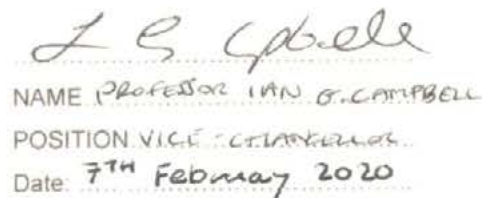 I G Campbell
NAME PROFESSOR IAN G. CAMPBELL
POSITION VICE-CHANCELLOR
Date: 7TH February 2020